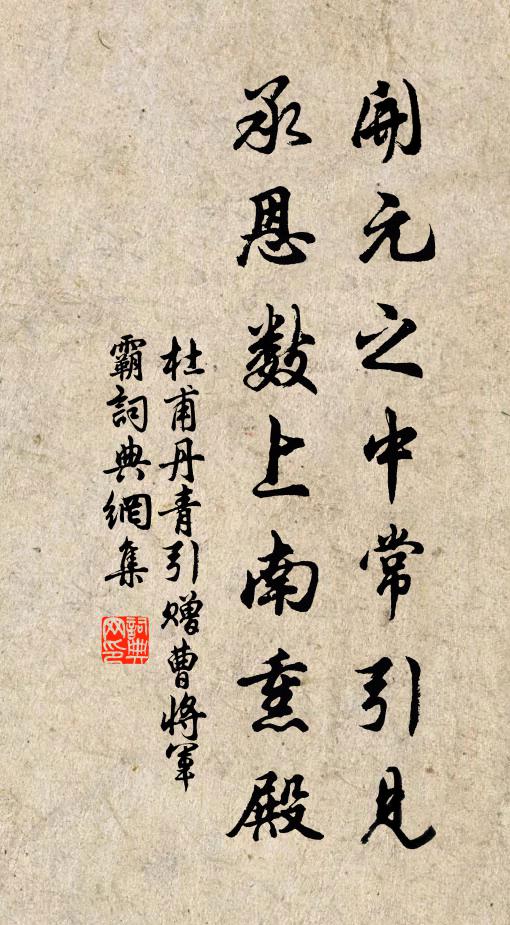 開元之中常引見
承恩數上南熏殿
杜甫丹青引贈曹將軍
霸詞典網集
詞典
网印